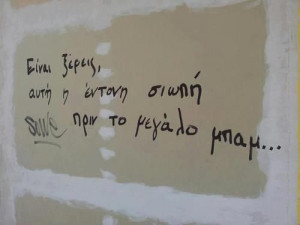 Είναι ξέρεις,
αυτή η έντονη σιωπή
πριν το μεγάλο μπαμ...